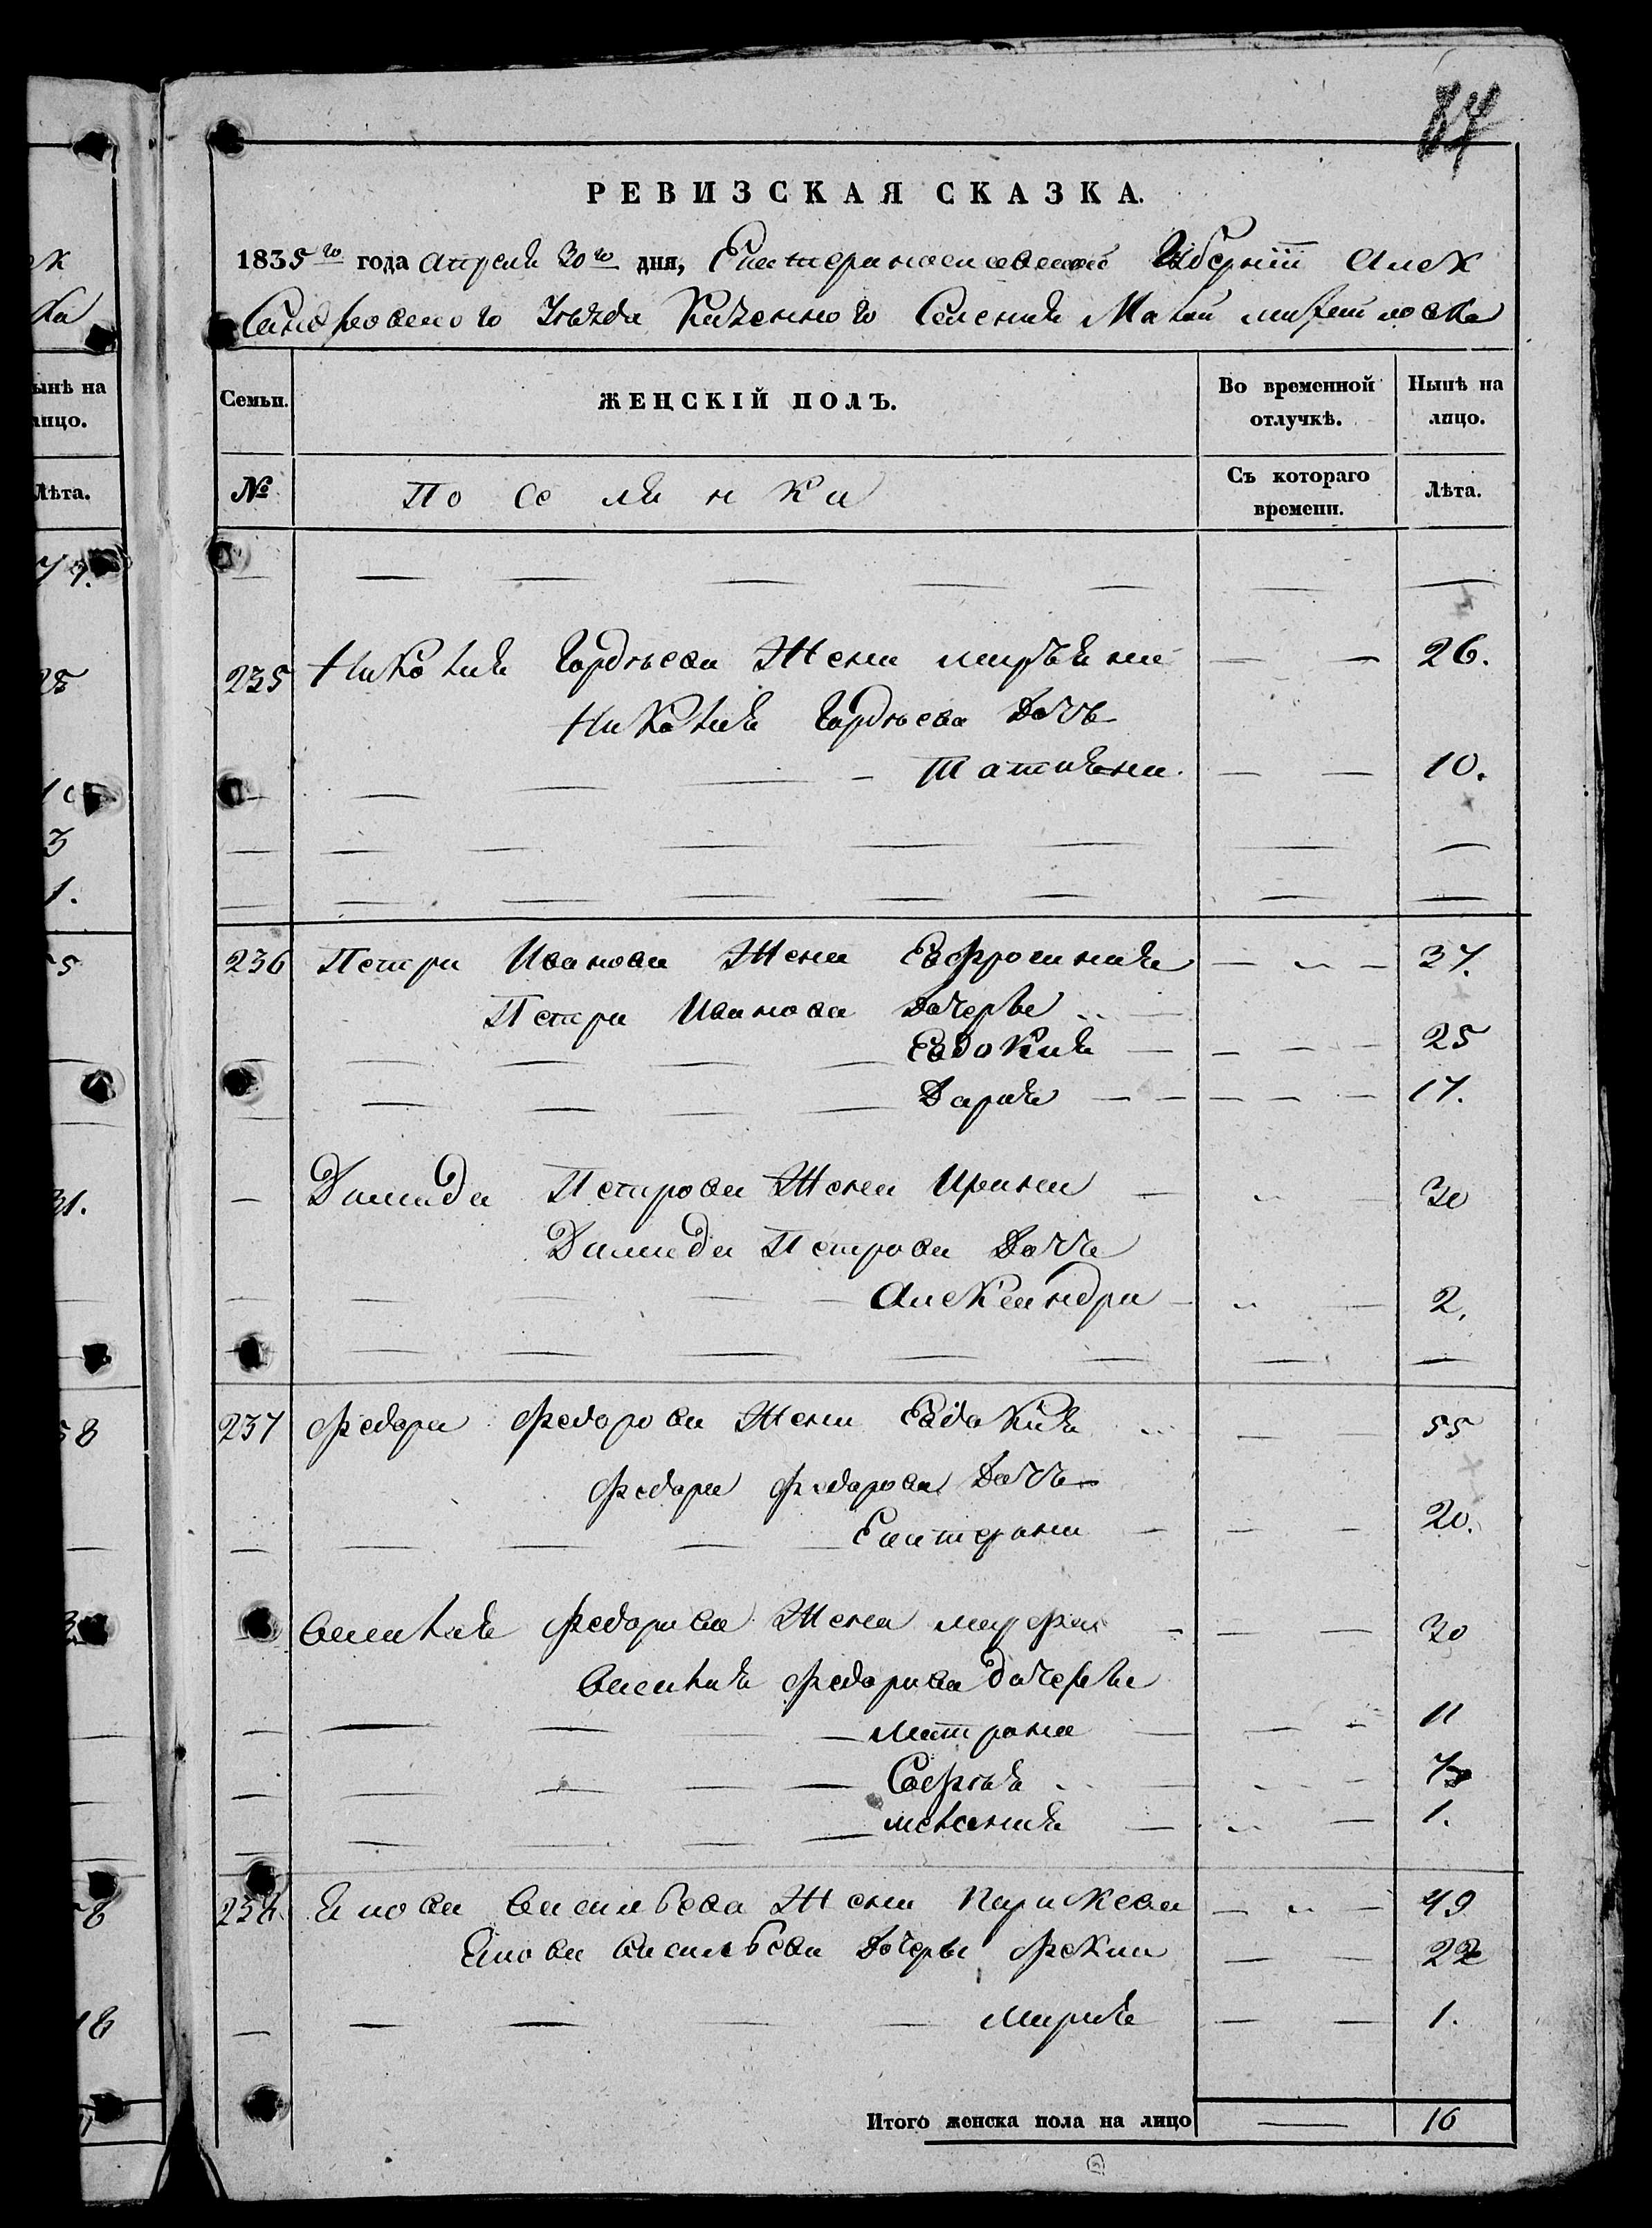 84
РЕВИЗСКАЯ СКАЗКА.
1835го года Апреля 30го дня, Екатеринославской Губернии Алек
Сандровского Уезда Казенного Селения Малой михайловка
Семьи. ЖЕНСКІЙ ПОЛЪ. Во временной отлучкѣ. Нынѣ на лицо.
№ По се ля н ки Съ котораго времени. Лѣта.
235 Николая Гордѣева Жена марьяна 26.
Николая Гордѣева Дочь
Татияна 10.
236 Петра Иванова Жена Евфросиния 37.
Петра Иванова Дочерьи
Евдокия 25
Дария 17.
Демида Петрова Жена Ирина 30
Демида Петрова Дочь
Александра 2.
237 Федора Федорова Жена Евдокия 55
Федора Федорова Дочь
Екатерина 20.
Василия Федорова Жена марфа 30
Василия Федорова дочерьи
матрона 11
София 7
мелания 1.
238. Якова Васильева Жена Параскева 49
Якова Васильева Дочерьи Фекла 22
Мария 1.
Итого женска пола на лицо 16
ынѣ на
лицо.
Лѣта.